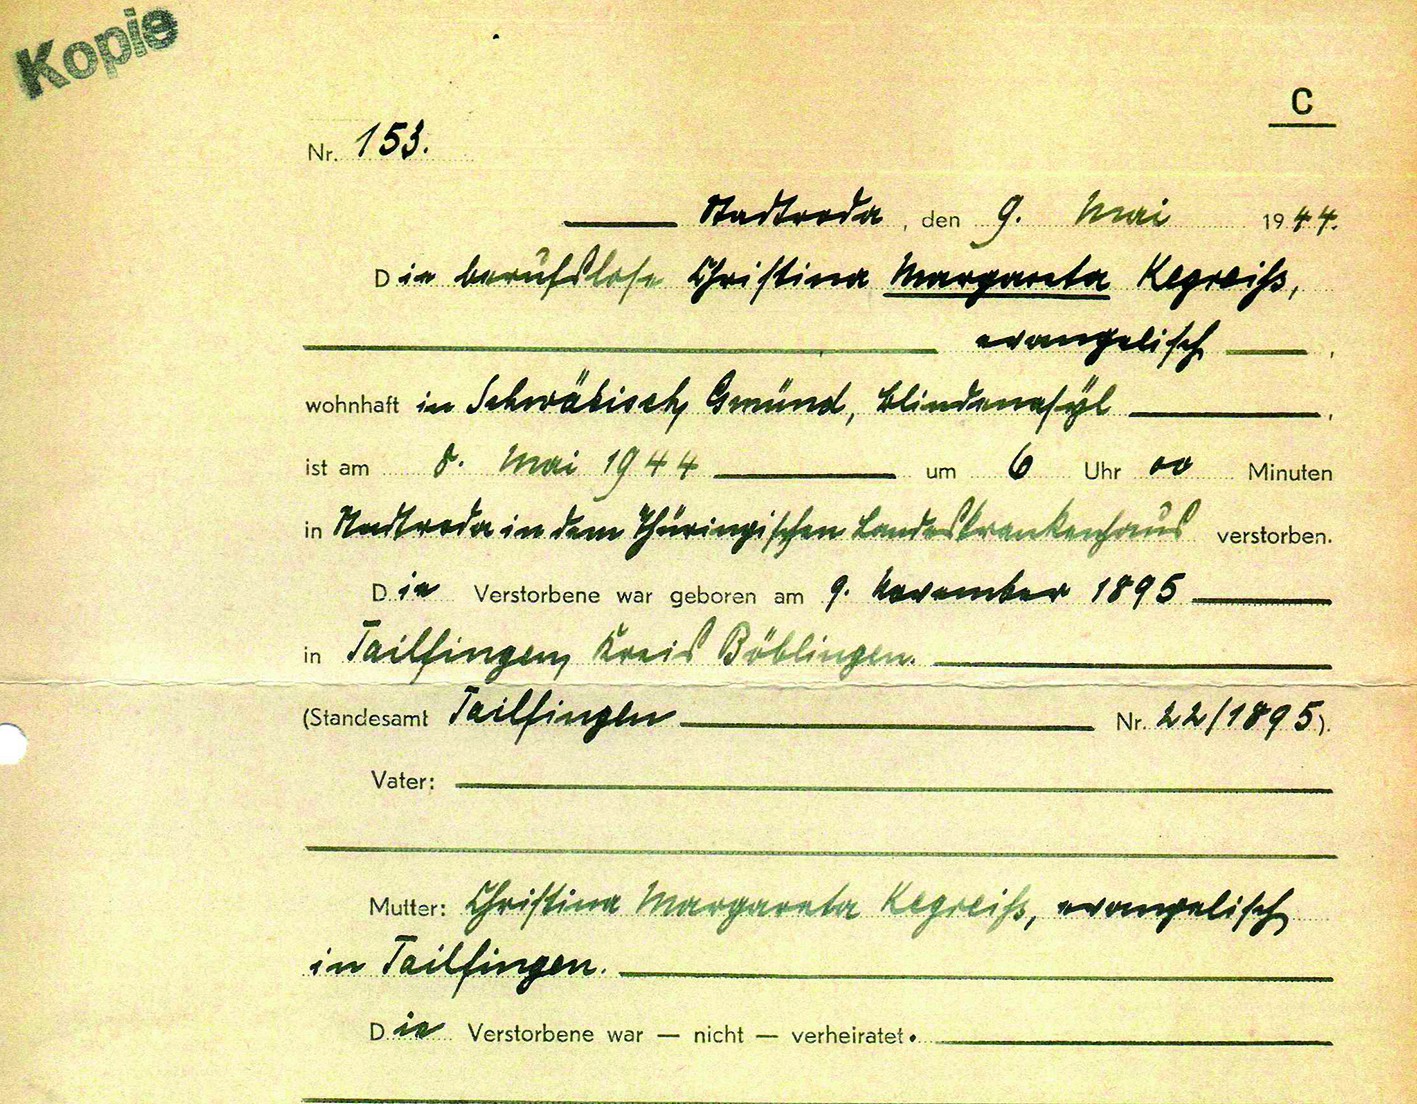 Kopie
C
Nr. 153.
Stadtroda, den 9. Mai 1944.
Die berufslose Christina Margareta Kegreiß,
evangelisch,
wohnhaft in Schwäbisch Gmünd, Blindenasyl,
ist am 8. Mai 1944 um 6 Uhr 00 Minuten
in Stadtroda in dem Thüringischen Landeskrankenhaus verstorben.
Die Verstorbene war geboren am 9. November 1895
in Tailfingen, Kreis Böblingen.
(Standesamt Tailfingen Nr. 22/1895).
Vater:
Mutter: Christina Margareta Kegreiß, evangelisch
in Tailfingen.
Die Verstorbene war — nicht — verheiratet.